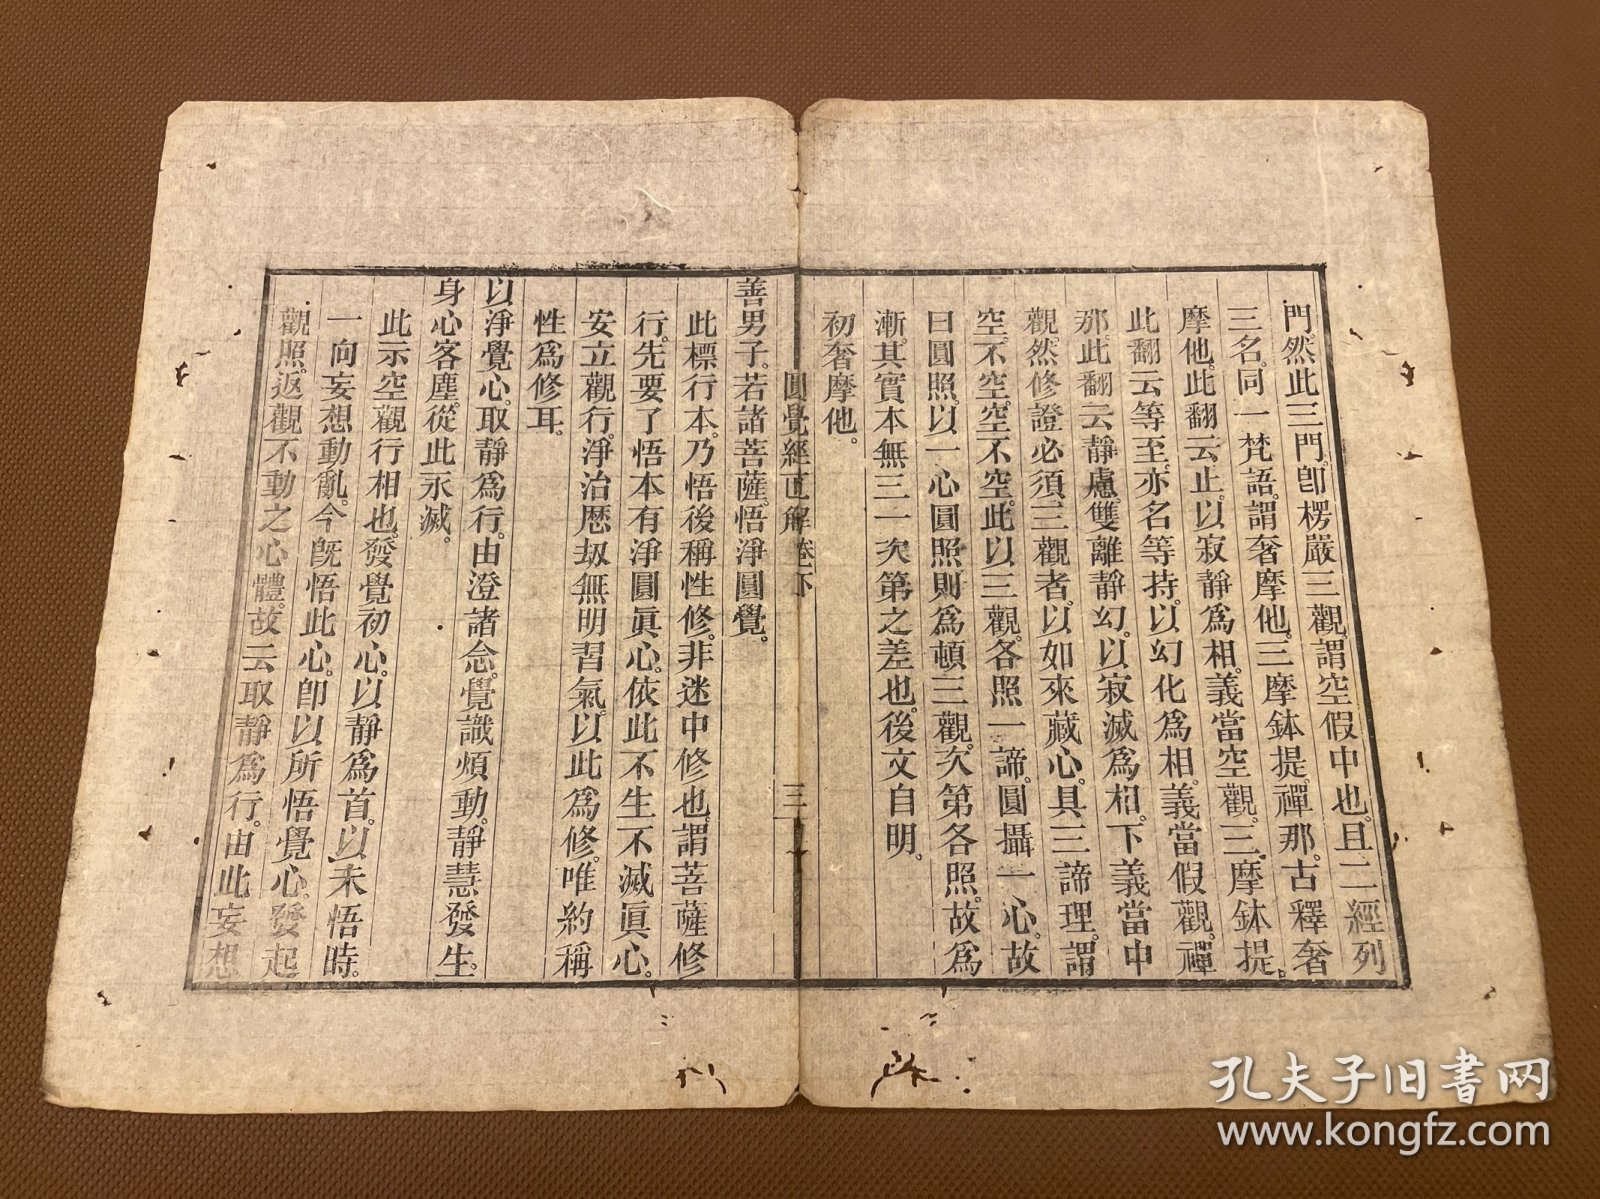 門。然此三門。卽楞嚴三觀。謂空假中也。且二經列
三名。同一梵語。謂奢摩他。三摩鉢提。禪那。古釋奢
摩他。此翻云止。以寂靜爲相。義當空觀。三摩鉢提。
此翻云等至。亦名等持。以幻化爲相。義當假觀。禪
那。此翻云靜慮。雙離靜幻。以寂滅爲相。下義當中
觀。然修證必須三觀者。以如來藏心。具三諦理。謂
空。不空。空不空。此以三觀。各照一諦。圓攝一心。故
曰圓照。以一心圓照則爲頓三觀。次第各照。故爲
漸。其實本無三一次第之差也。後文自明。
初奢摩他。
圓覺經直解 卷下 三
善男子。若諸菩薩。悟淨圓覺。
此標行本。乃悟後稱性修。非迷中修也。謂菩薩修
行。先要了悟本有淨圓眞心。依此不生不滅眞心。
安立觀行。淨治歷劫無明習氣。以此爲修。唯約稱
性爲修耳。
以淨覺心。取靜爲行。由澄諸念。覺識煩動。靜慧發生。
身心客塵。從此永滅。
此示空觀行相也。發覺初心。以靜爲首。以未悟時。
一向妄想動亂。今旣悟此心。卽以所悟覺心。發起
觀照。返觀不動之心體。故云取靜爲行。由此妄想
孔夫子旧書网
www.kongfz.com